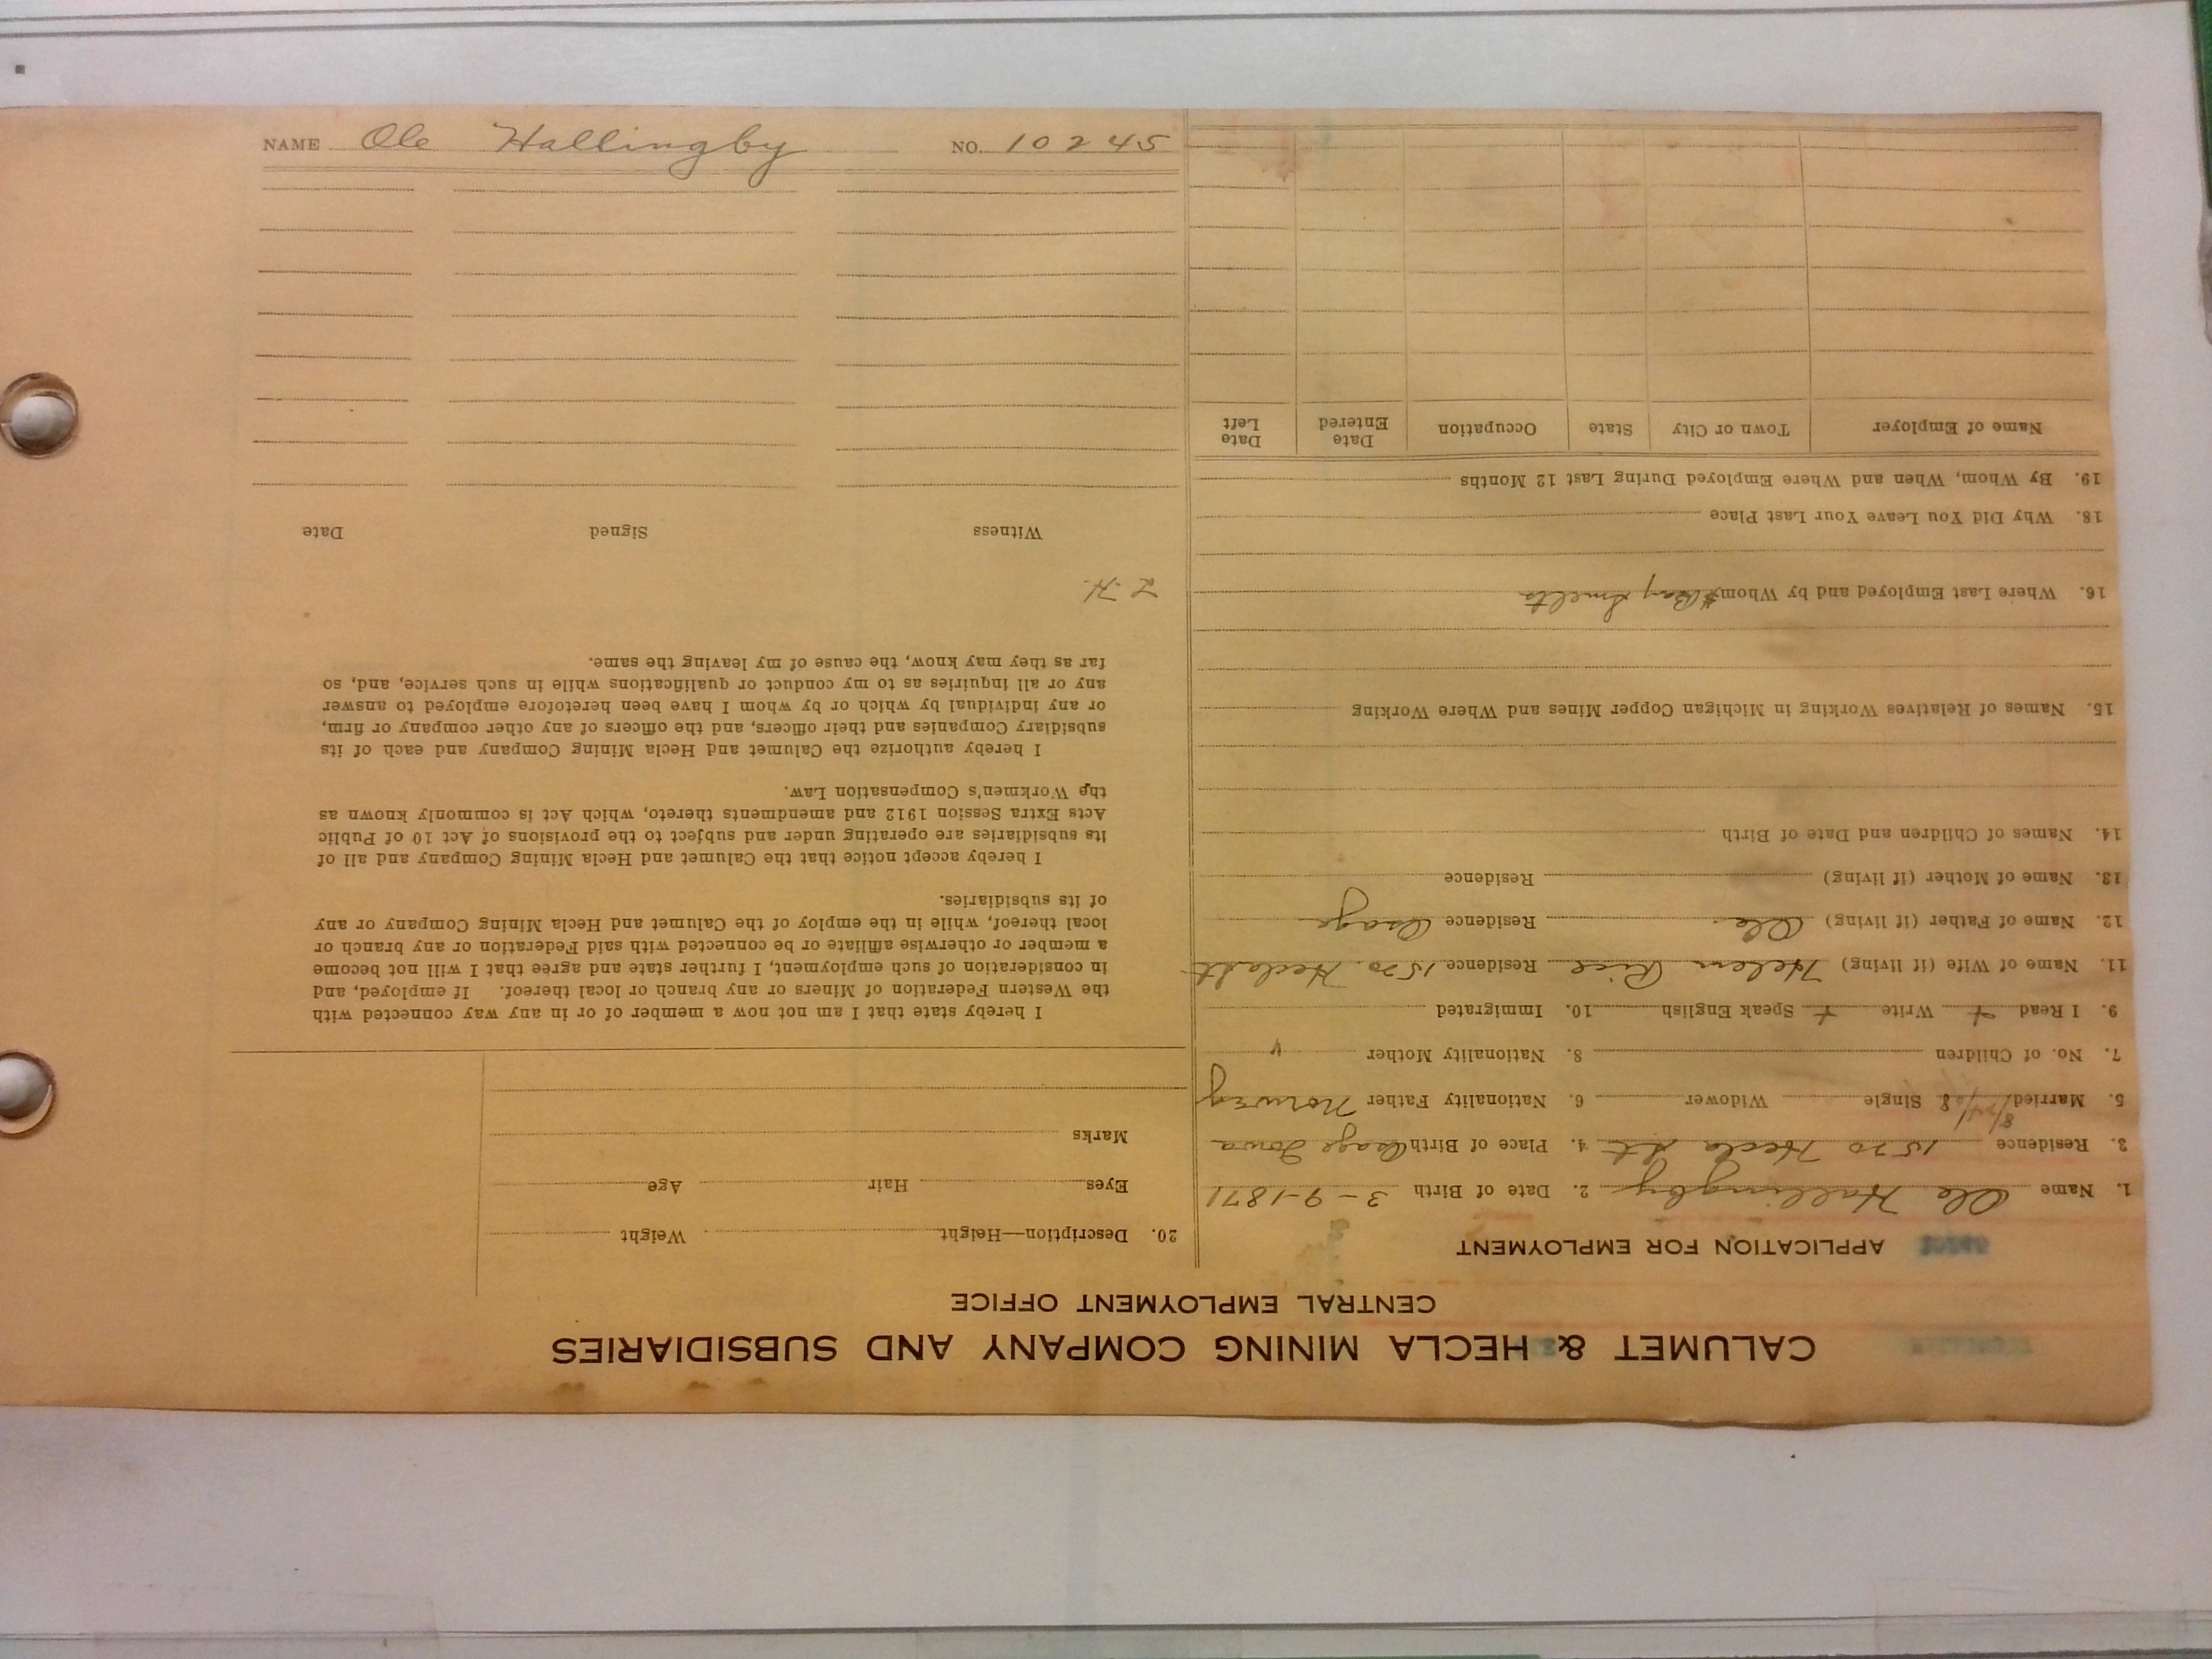 CALUMET & HECLA MINING COMPANY AND SUBSIDIARIES
CENTRAL EMPLOYMENT OFFICE
APPLICATION FOR EMPLOYMENT
1. Name Ole Hallingby 2. Date of Birth 3-9-1871
3. Residence 1520 Hecla St 4. Place of Birth Osage Iowa
5. Married Single Widower 6. Nationality Father Norweg
7. No. of Children 8. Nationality Mother "
9. I Read + Write + Speak English 10. Immigrated
11. Name of Wife (if living) Helen Rice Residence 1520 Hecla St
12. Name of Father (if living) Ole Residence Osage
13. Name of Mother (if living) Residence
14. Names of Children and Date of Birth
15. Names of Relatives Working in Michigan Copper Mines and Where Working
16. Where Last Employed and by Whom Smelts
18. Why Did You Leave Your Last Place
19. By Whom, When and Where Employed During Last 12 Months
Name of Employer Town or City State Occupation Date Entered Date Left
20. Description—Height Weight
Eyes Hair Age
Marks
I hereby state that I am not now a member of or in any way connected with
the Western Federation of Miners or any branch or local thereof. If employed, and
in consideration of such employment, I further state and agree that I will not become
a member or otherwise affiliate or be connected with said Federation or any branch or
local thereof, while in the employ of the Calumet and Hecla Mining Company or any
of its subsidiaries.
I hereby accept notice that the Calumet and Hecla Mining Company and all of
its subsidiaries are operating under and subject to the provisions of Act 10 of Public
Acts Extra Session 1912 and amendments thereto, which Act is commonly known as
the Workmen's Compensation Law.
I hereby authorize the Calumet and Hecla Mining Company and each of its
subsidiary Companies and their officers, and the officers of any other company or firm,
or any individual by which or by whom I have been heretofore employed to answer
any or all inquiries as to my conduct or qualifications while in such service, and, so
far as they may know, the cause of my leaving the same.
L. H.
Witness Signed Date
NAME Ole Hallingby NO. 10245